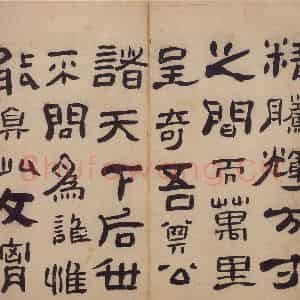 精騰輝方寸
之間而萬里
呈奇吾公
諸天下后世
不問為誰惟
能文
shufawang.cn